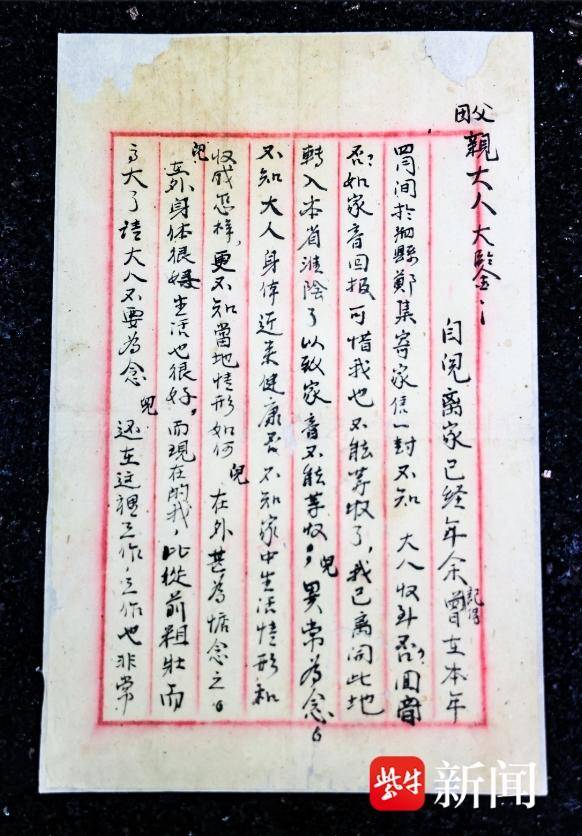 父母親大人大鑒：
自児离家已经年余記得曾在本年
四月间於泗縣鄭集寄家信一封不知 大人收到否？回音
否？如家音回报可惜我也不能等收了，我已离開此地
轉入本省淮陰了以致家音不能等收，兒異常為念。
不知大人身体近来健康否不知家中生活情形和
收成怎样，更不知當地情形如何 兒在外甚為惦念之。
兒在外身体很好生活也很好，而現在的我，比從前粗壮而
高大了請大人不要為念 兒还在这裡工作，工作也非常
紫牛新闻